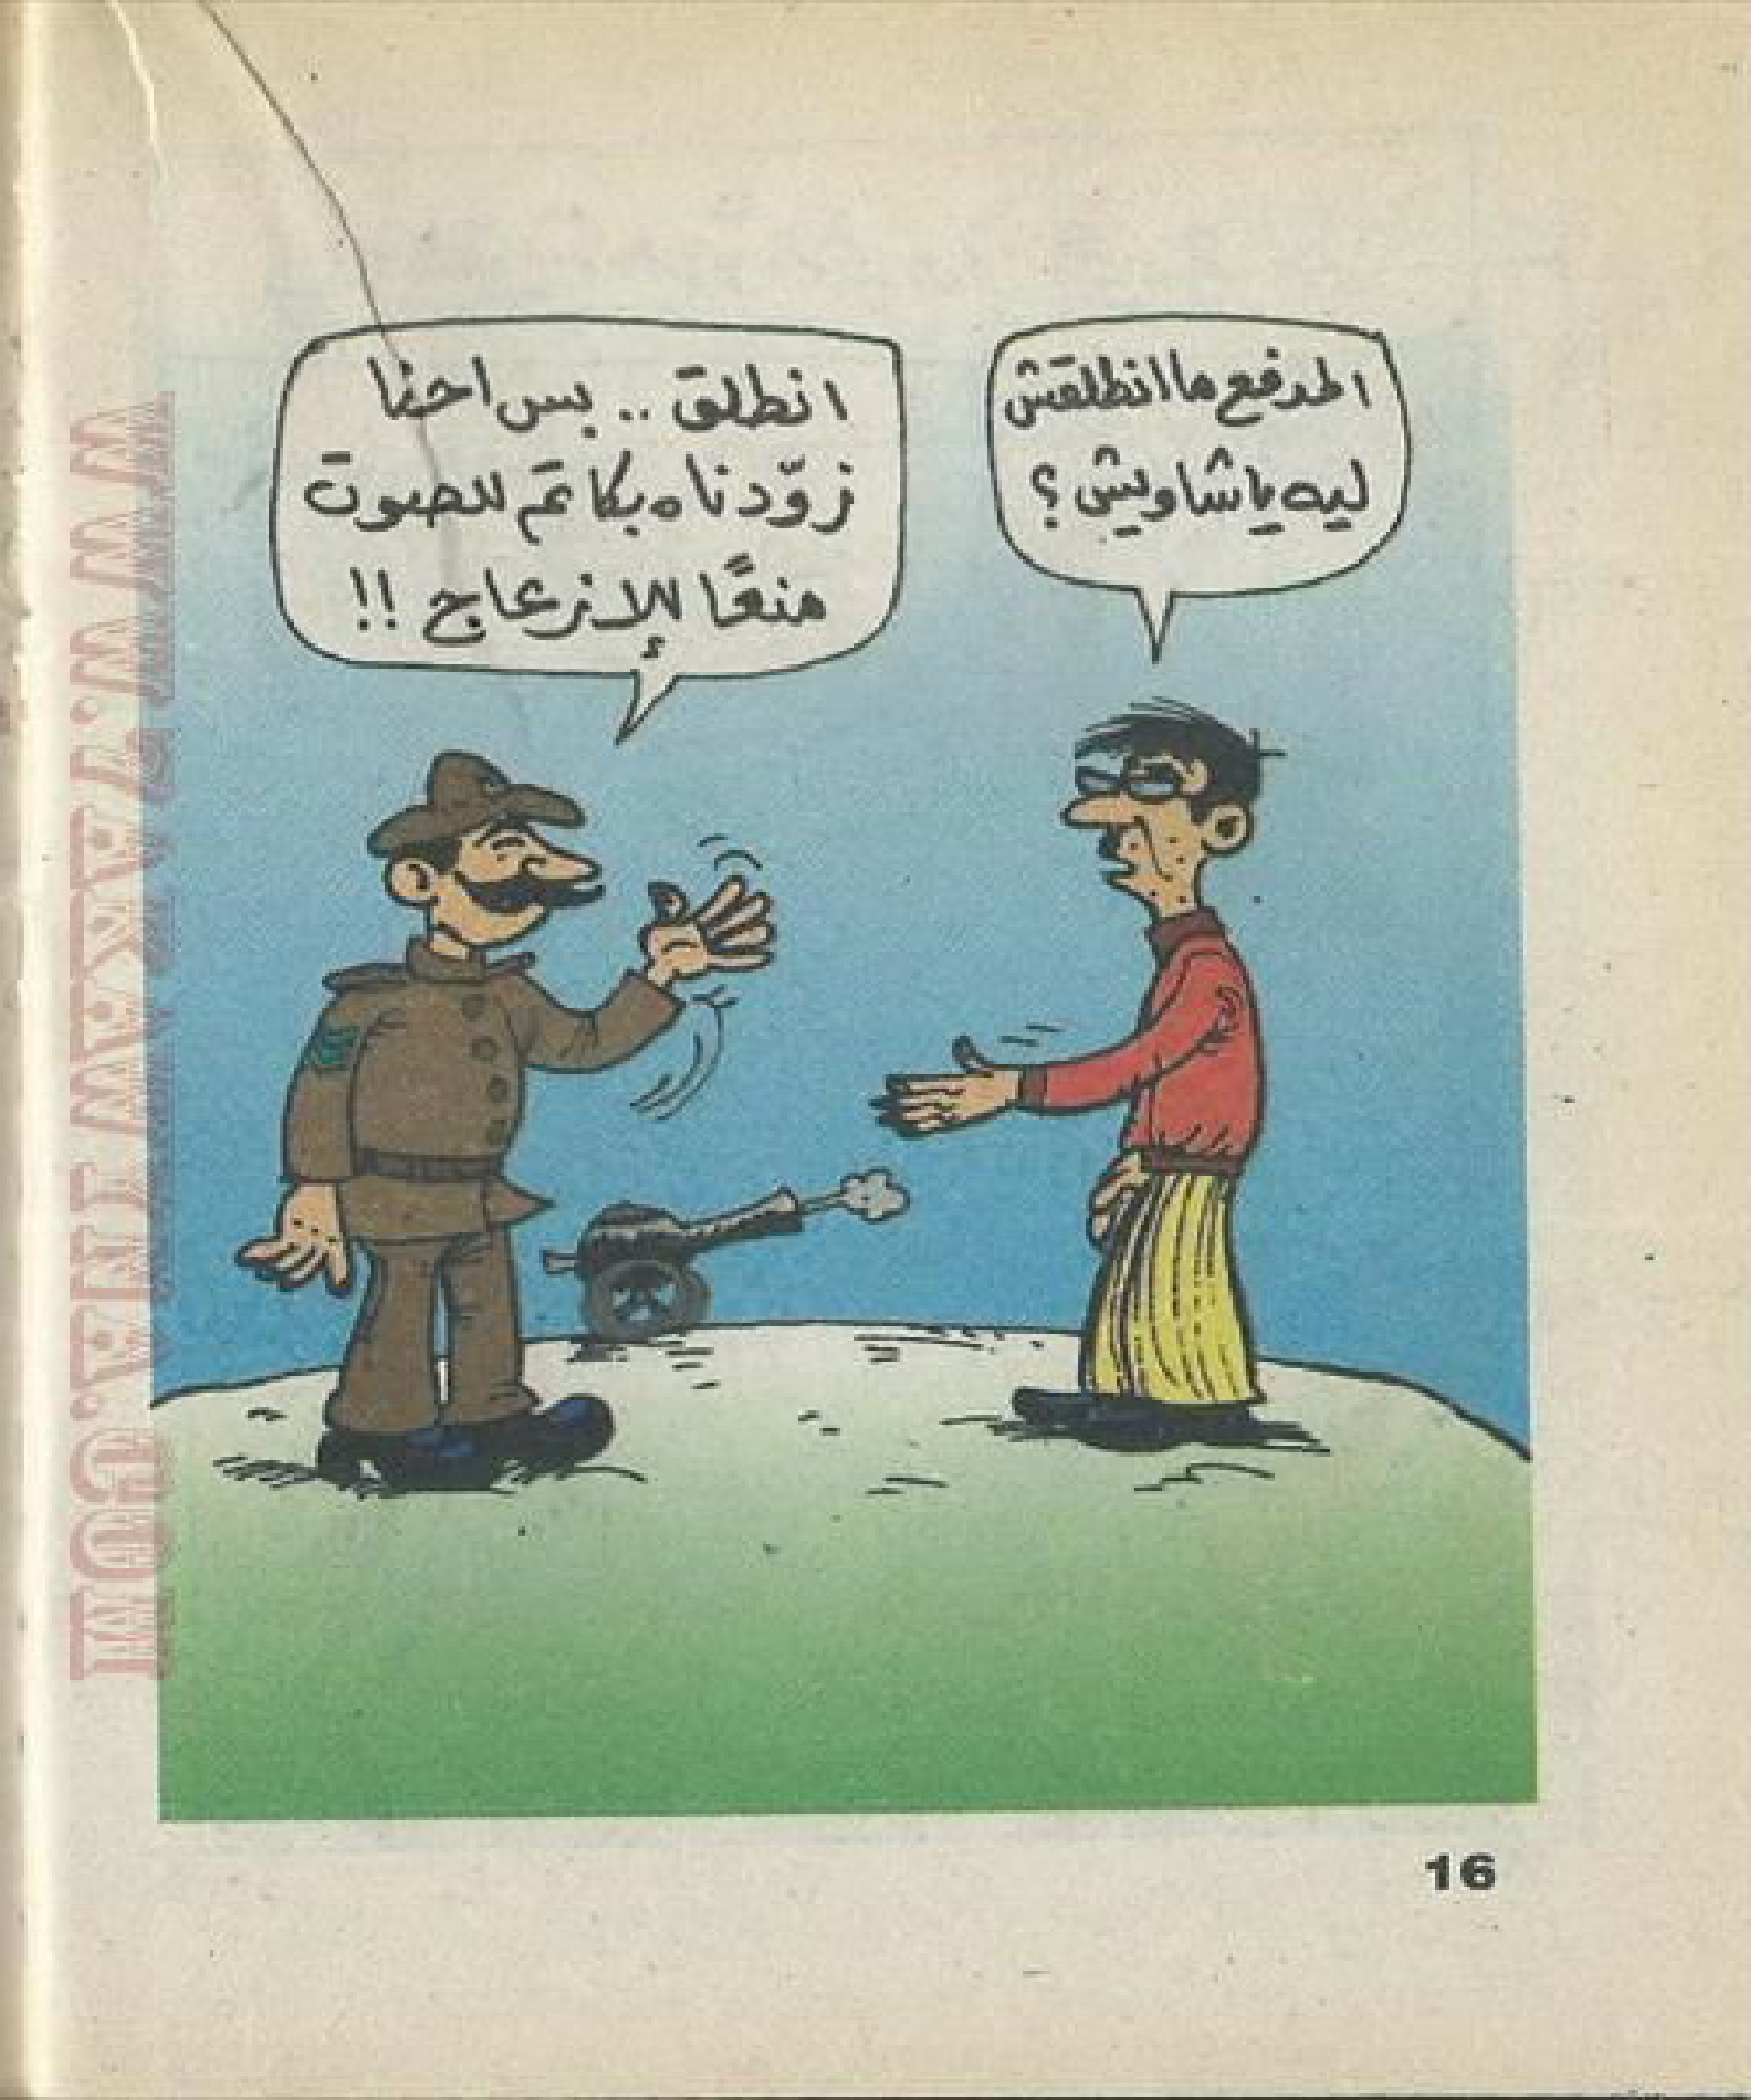 المدفع ماانطلقش
ليه ياشاويش؟
انطلق .. بس احنا
زوّدناه بكاتم للصوت
منعًا للإزعاج !!
16